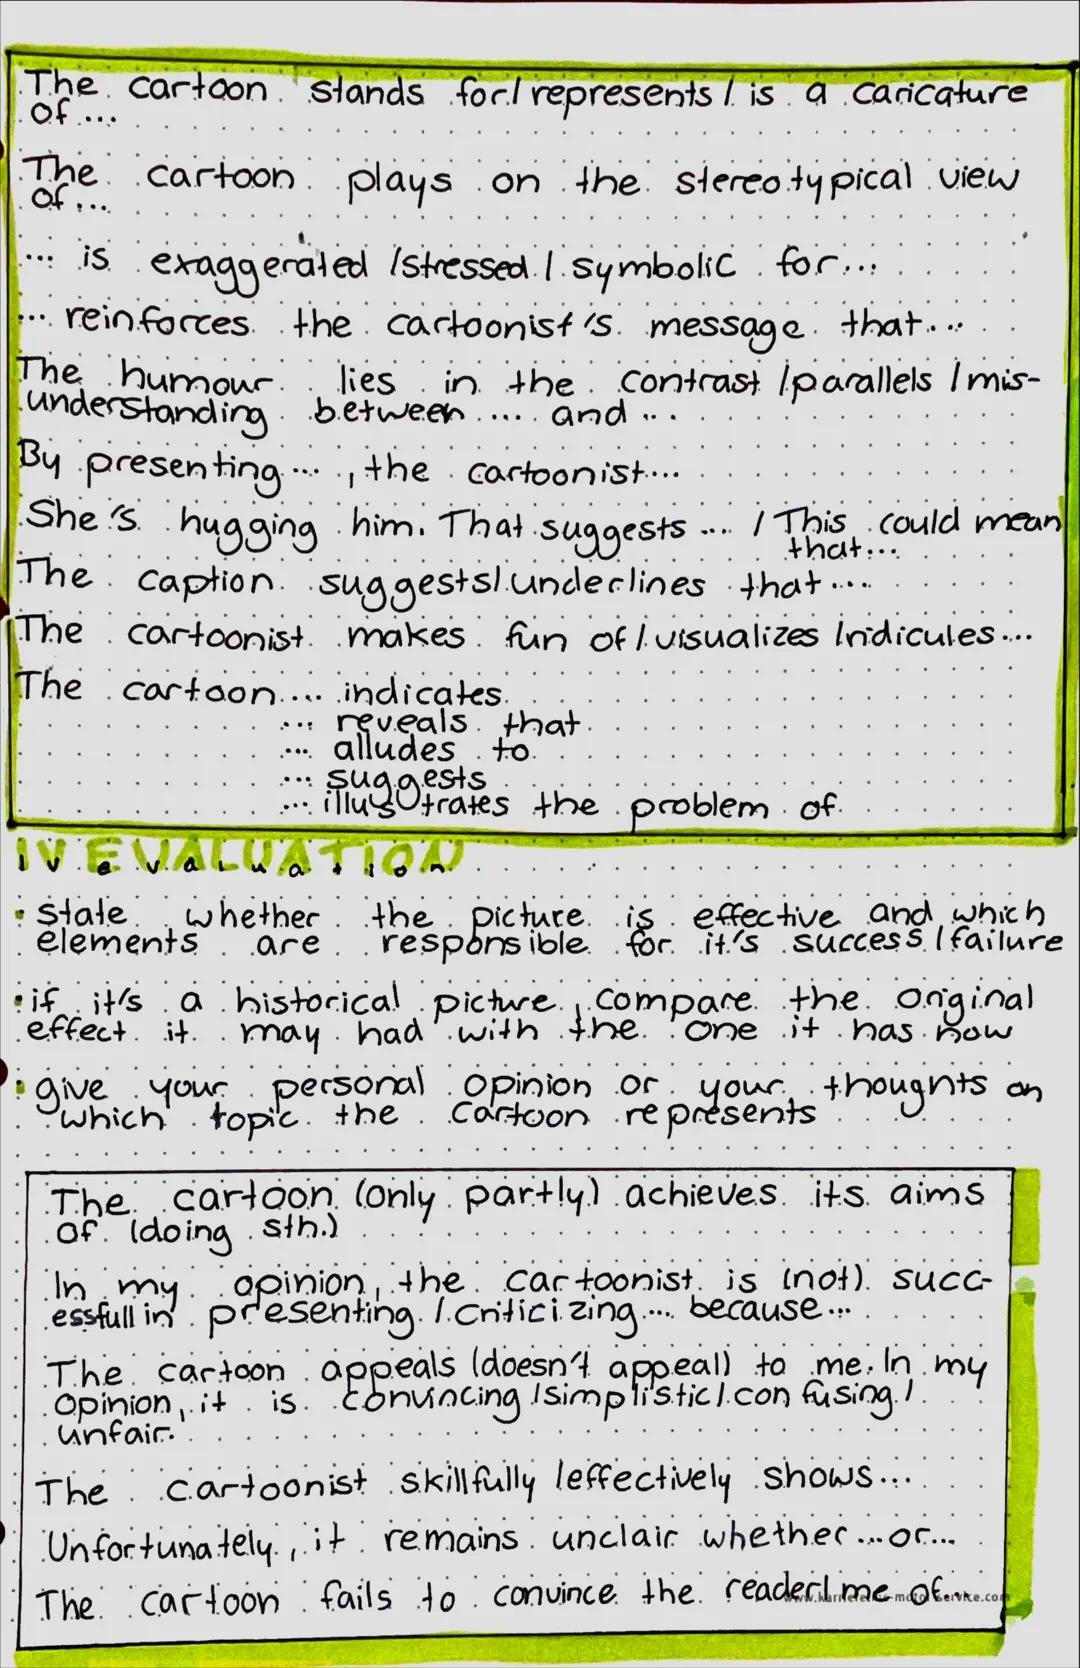 The cartoon stands for/ represents/ is a caricature
of ...
The cartoon plays on the stereotypical view
of ...
... is exaggerated /stressed / symbolic for...
... reinforces the cartoonist's message that...
The humour lies in the contrast /parallels /mis-
understanding between ... and ...
By presenting ... , the cartoonist...
She's hugging him. That suggests ... / This could mean
that...
The caption suggests/underlines that ...
The cartoonist makes fun of / visualizes /ridicules ...
The cartoon ... indicates
... reveals that
... alludes to
... suggests
... illustrates the problem of
IV EVALUATION
• state whether the picture is effective and which
elements are responsible for it's success / failure
• if it's a historical picture, compare the original
effect it may had with the one it has now
• give your personal opinion or your thoughts on
which topic the cartoon represents
The cartoon (only partly) achieves its aims
of (doing sth.)
In my opinion, the cartoonist is (not) succ-
essfull in presenting / criticizing ... because ...
The cartoon appeals (doesn't appeal) to me. In my
opinion, it is convincing /simplistic / confusing /
unfair.
The cartoonist skillfully /effectively shows...
Unfortunately, it remains unclair whether ... or...
The cartoon fails to convince the reader/ me of...